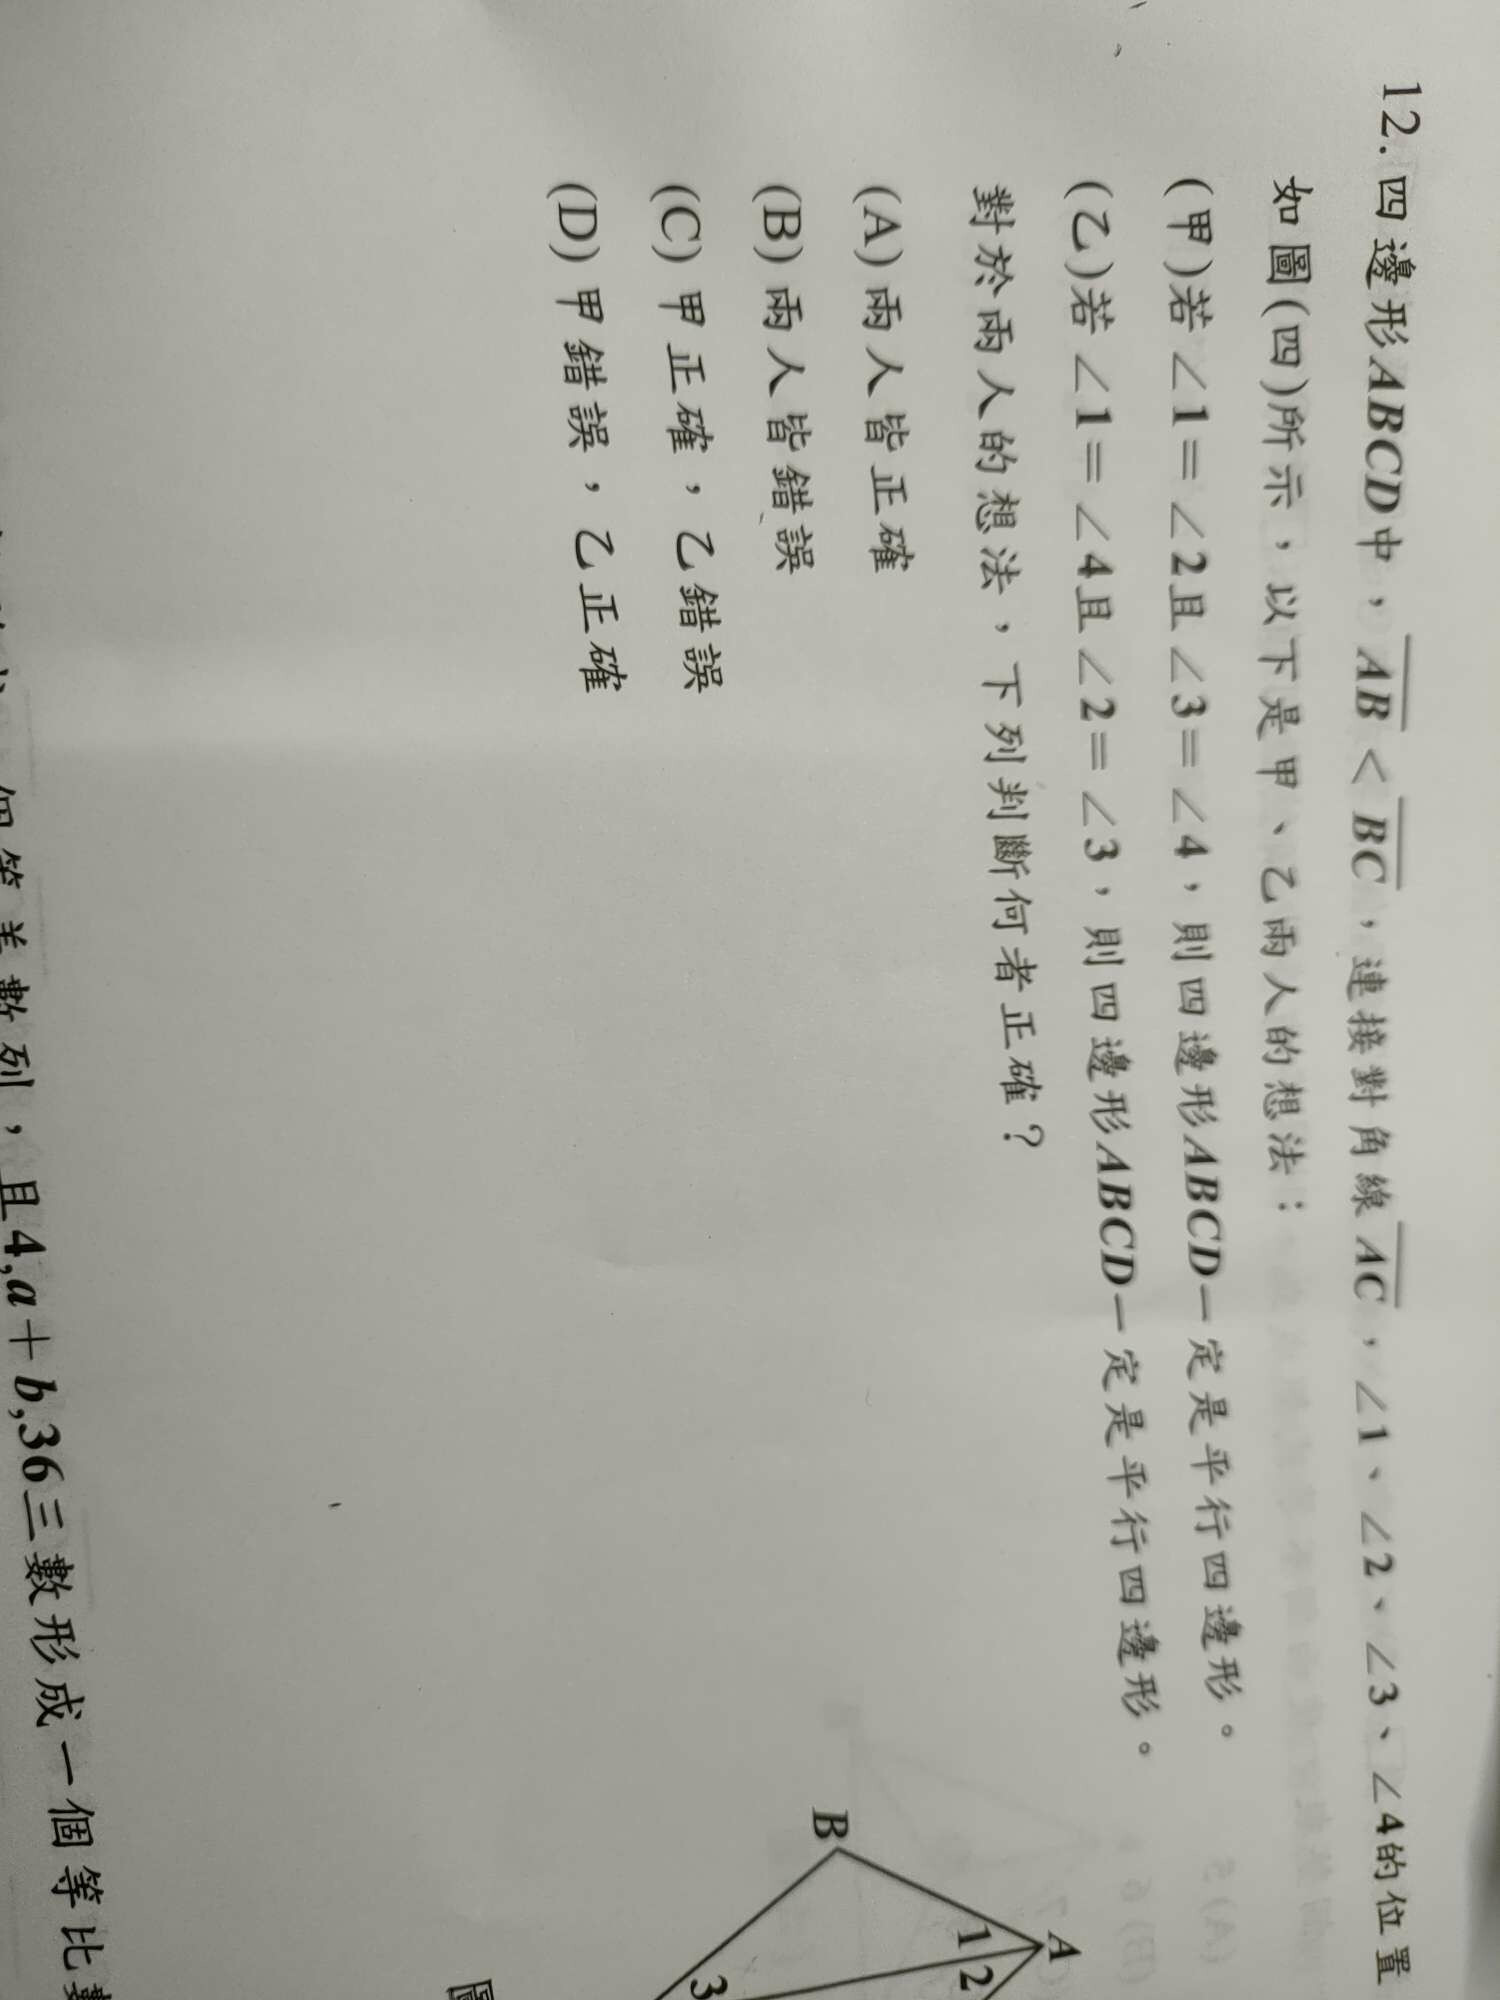 12. 四邊形ABCD中，AB＜BC，連接對角線AC，∠1、∠2、∠3、∠4的位置
如圖(四)所示，以下是甲、乙兩人的想法：
(甲)若∠1＝∠2且∠3＝∠4，則四邊形ABCD一定是平行四邊形。
(乙)若∠1＝∠4且∠2＝∠3，則四邊形ABCD一定是平行四邊形。
對於兩人的想法，下列判斷何者正確？
(A) 兩人皆正確
(B) 兩人皆錯誤
(C) 甲正確，乙錯誤
(D) 甲錯誤，乙正確
A
B
1
2
3
圖
個等差數列，且4,a＋b,36三數形成一個等比